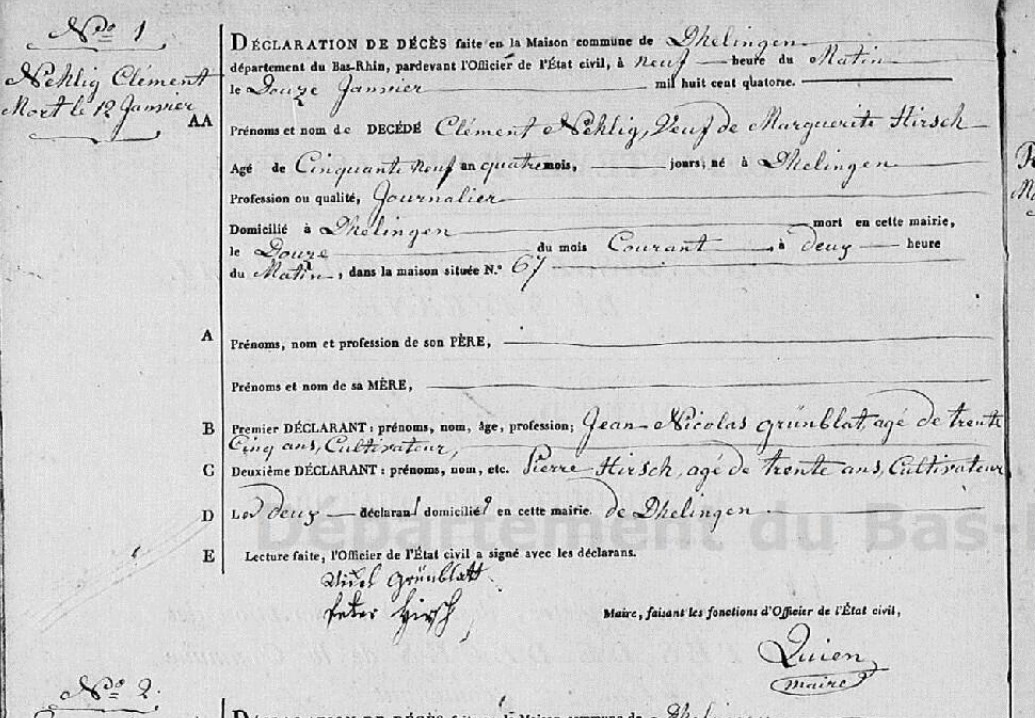 N.º 1
Nehlig Clément
Mort le 12 Janvier
DÉCLARATION DE DÉCÈS faite en la Maison commune de Dhelingen
département du Bas-Rhin, pardevant l'Officier de l'État civil, à neuf heure du Matin
le Douze Janvier mil huit cent quatorse.
AA Prénoms et nom de DECÉDÉ Clément Nehlig, Veuf de Marguerite Hirsch
Agé de Cinquante neuf an quatre mois, jours, né à Dhelingen
Profession ou qualité, Journalier
Domicilié à Dhelingen mort en cette mairie,
le Douze du mois Courant, à deux heure
du Matin, dans la maison située N.º 67
A Prénoms, nom et profession de son PÈRE,
Prénoms et nom de sa MÈRE,
B Premier DÉCLARANT : prénoms, nom, âge, profession; Jean Nicolas Grünblat, agé de trente
Cinq ans, Cultivateur,
C Deuxième DÉCLARANT : prénoms, nom, etc. Pierre Hirsch, agé de trente ans, Cultivateur
D Les deux déclarans domiciliés en cette mairie. de Dhelingen
E Lecture faite, l'Officier de l'État civil a signé avec les déclarans.
Grünblatt
Peter Hirsch
Maire, faisant les fonctions d'Officier de l'État civil,
Quien
maire
Département du Bas-
N.º 2.
DÉCLARATION DE DÉCÈS la Maison commune de Dhelingen